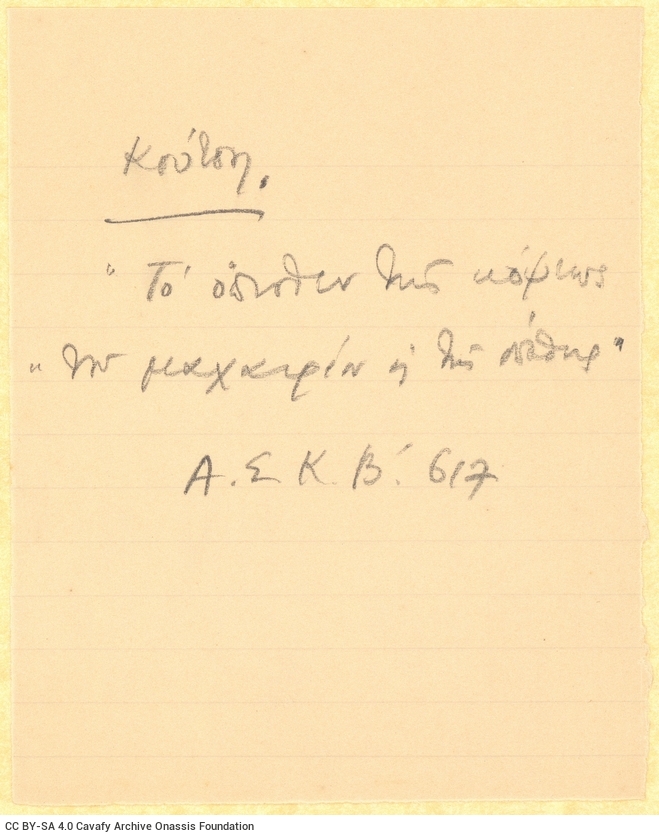 Κούτση.
" Το όπισθεν της κόψεως
" του μαχαιρίου ή της σπάθης"
Α. Σ. Κ. Β΄. 617
CC BY-SA 4.0 Cavafy Archive Onassis Foundation